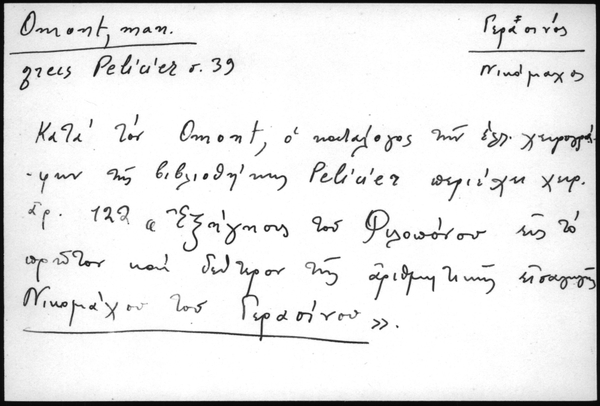 Omont, man.
grecs Pelicier σ. 39
Γερασινός
Νικόμαχος
Κατά τόν Omont, ὁ κατάλογος τῶν ἑλλ. χειρογρά-
-φων τῆς βιβλιοθήκης Pelicier περιέχει χειρ.
ἀρ. 122 « Ἐξήγησις τοῦ Φιλοπόνου εἰς τό
πρῶτον καί δεύτερον τῆς ἀριθμητικῆς εἰσαγωγῆς
Νικομάχου τοῦ Γερασίνου ».